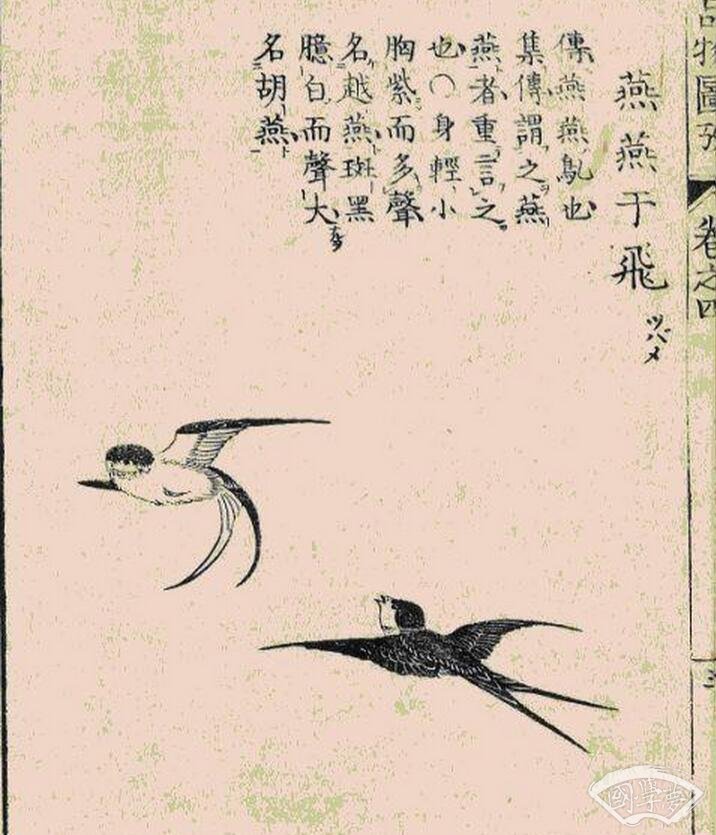 物圖攷 卷之四
燕燕于飛 ツバメ
傳燕燕鳦也
集傳謂之燕
燕者重言之
也〇身輕小
胸紫而多聲
名越燕斑黑
臆白而聲大
名胡燕
國學夢